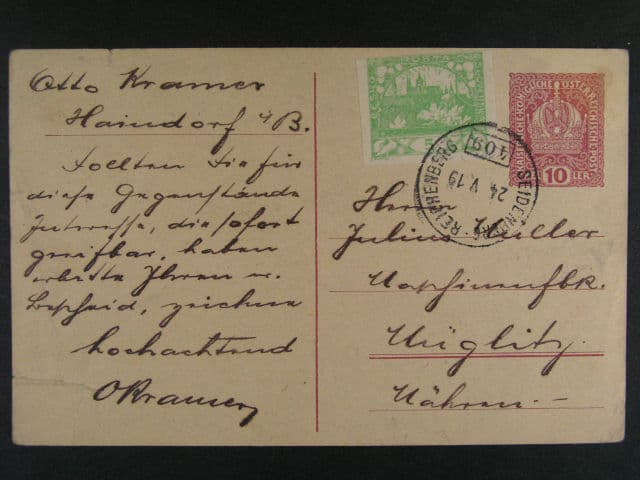 Otto Kramer
Haindorf i/B.
Sollten Sie für
diese Gegenstände
Interesse, die sofort
greifbar, haben
erbitte Ihren w.
Bescheid, zeichne
hochachtend
OKramer
POŠTA
KAISERLICHE KÖNIGLICHE ÖSTERREICHISCHE POST
10 HELLER
SEIDENBERG-REICHENBERG
409
24 V 19
Herrn
Julius Müller
Maschinenfbk.
Müglitz
Mähren.-